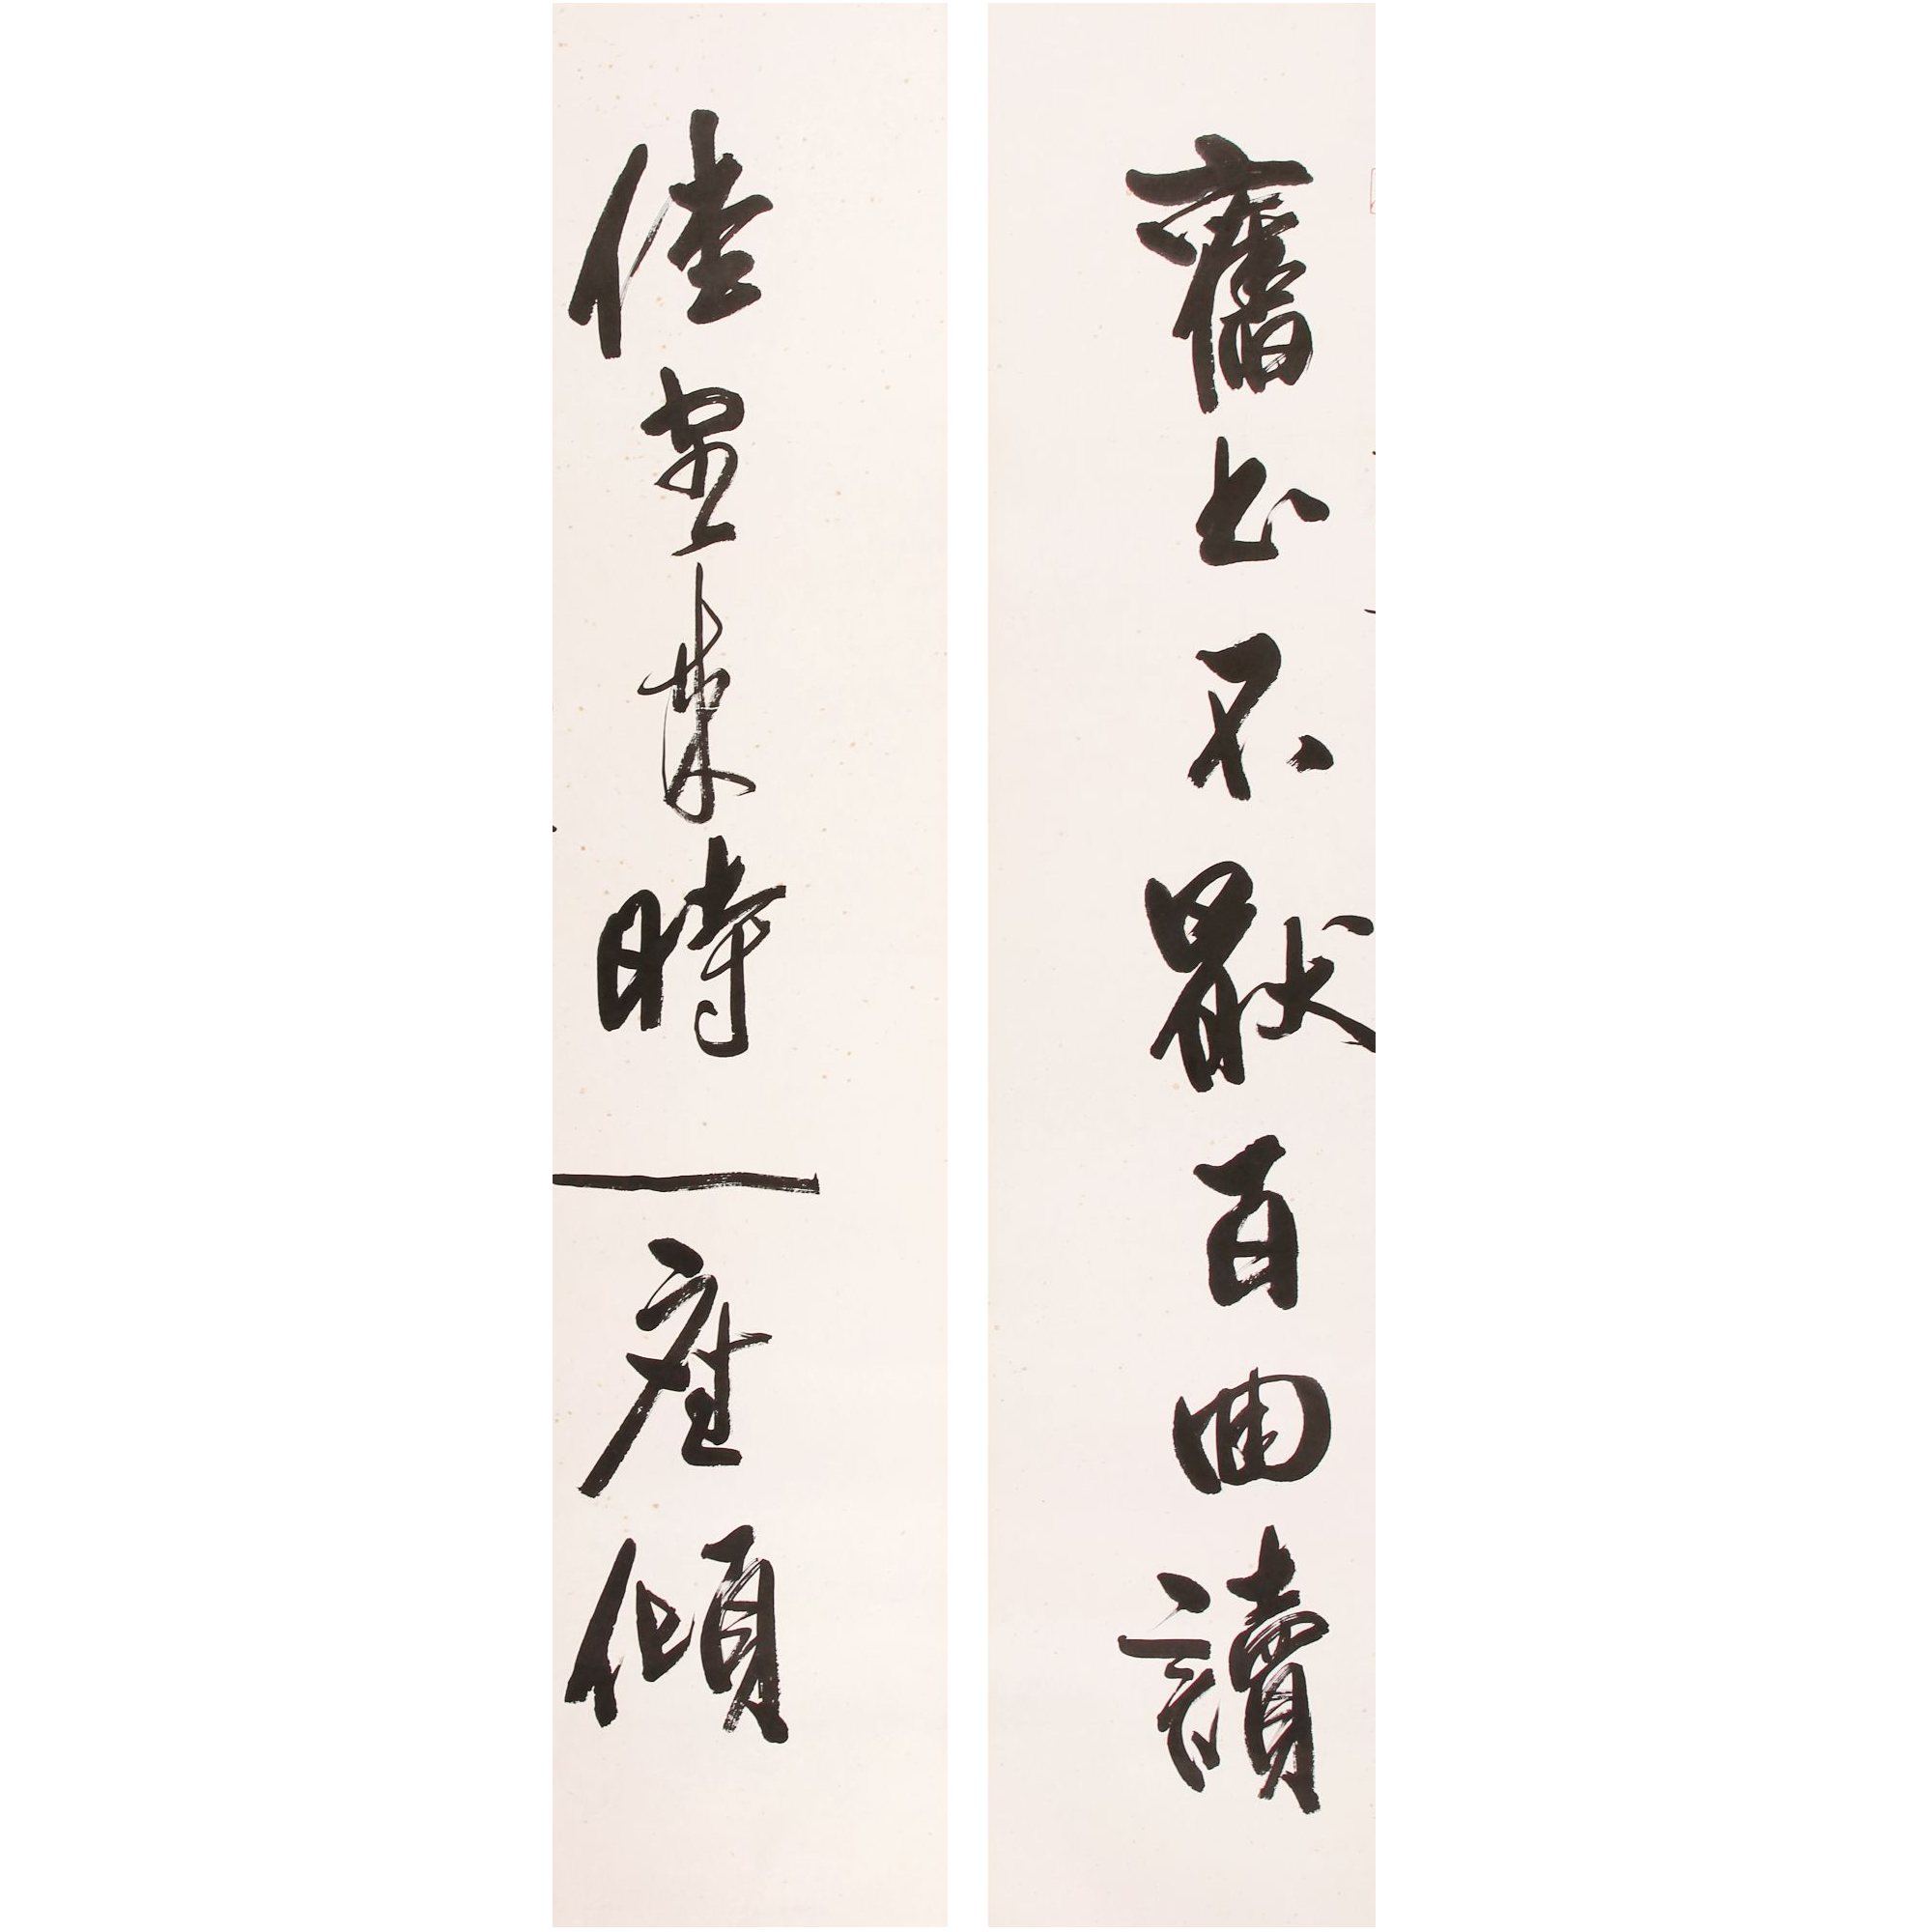 舊書不猒百回讀
佳客來時一座傾